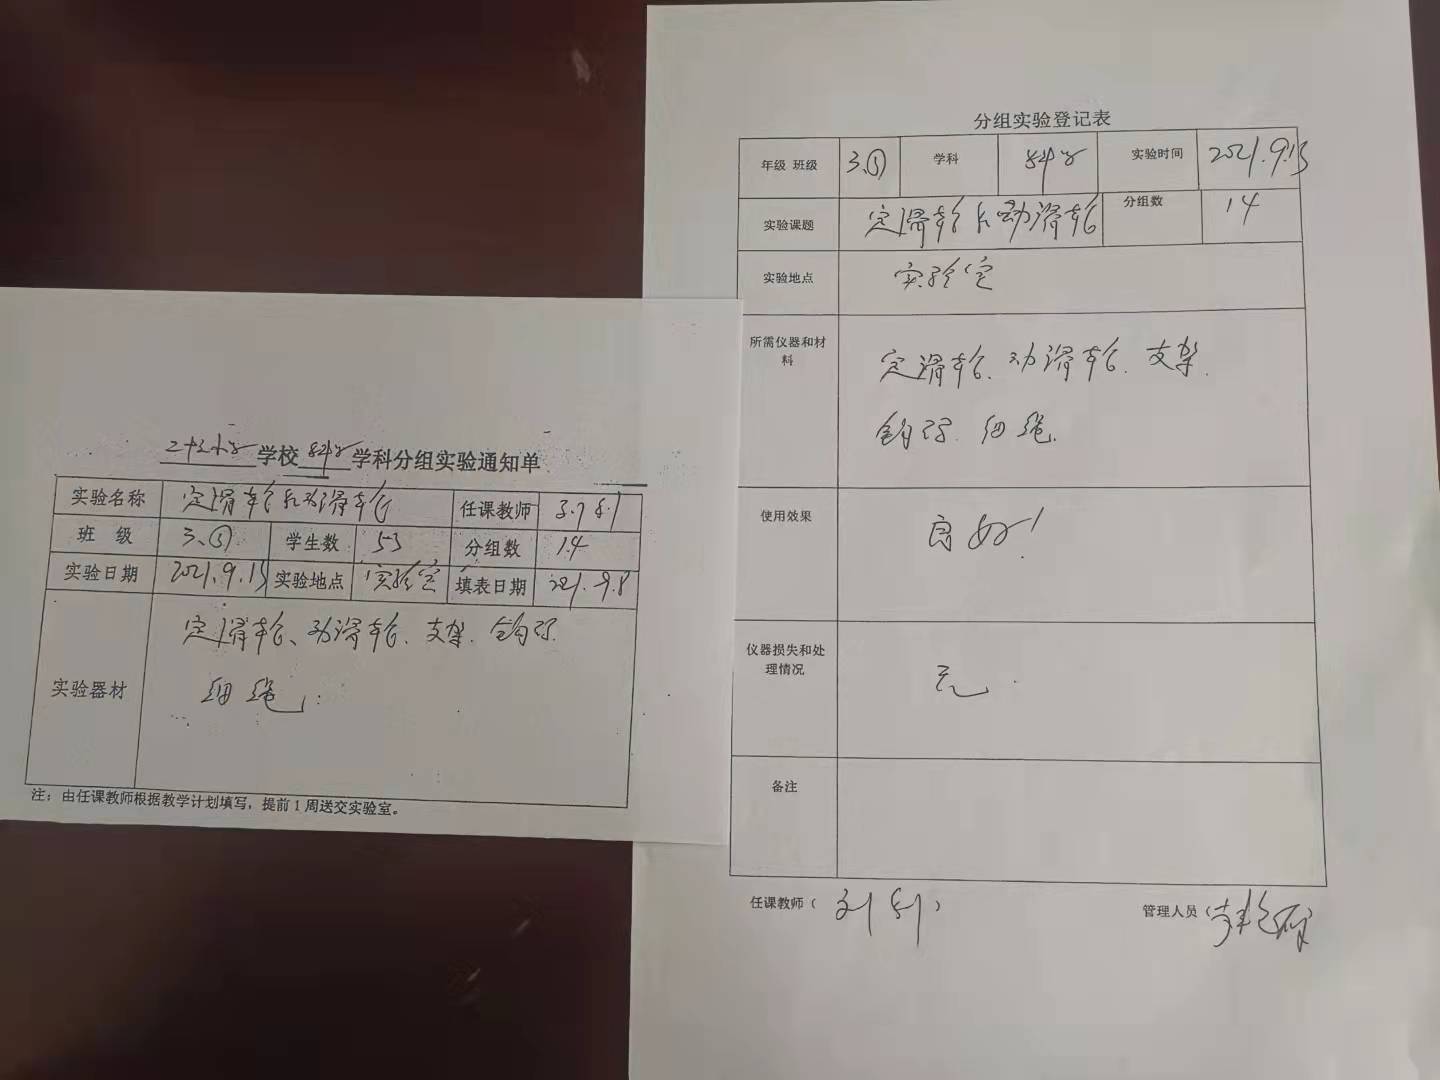 学校科学学科分组实验通知单
实验名称 定滑轮和动滑轮 任课教师
班 级 3.⑤ 学生数 53 分组数 14
实验日期 2021.9.15 实验地点 实验室 填表日期 2021.9.8
实验器材 定滑轮、动滑轮、支架.钩码.
细绳.
注：由任课教师根据教学计划填写，提前1周送交实验室。
分组实验登记表
年级 班级 3.⑤ 学科 科学 实验时间 2021.9.15
实验课题 定滑轮和动滑轮 分组数 14
实验地点 实验室
所需仪器和材料 定滑轮.动滑轮.支架.
钩码.细绳.
使用效果 良好！
仪器损失和处理情况 无.
备注
任课教师（ ）
管理人员（